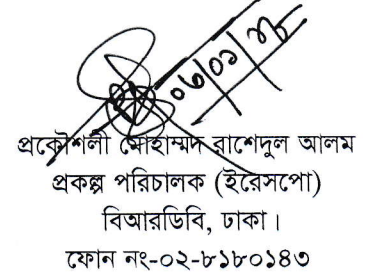 ০৬/০১/২১
প্রকৌশলী মোহাম্মদ রাশেদুল আলম
প্রকল্প পরিচালক (ইরেসপো)
বিআরডিবি, ঢাকা।
ফোন নং-০২-৮১৮০১৪৩